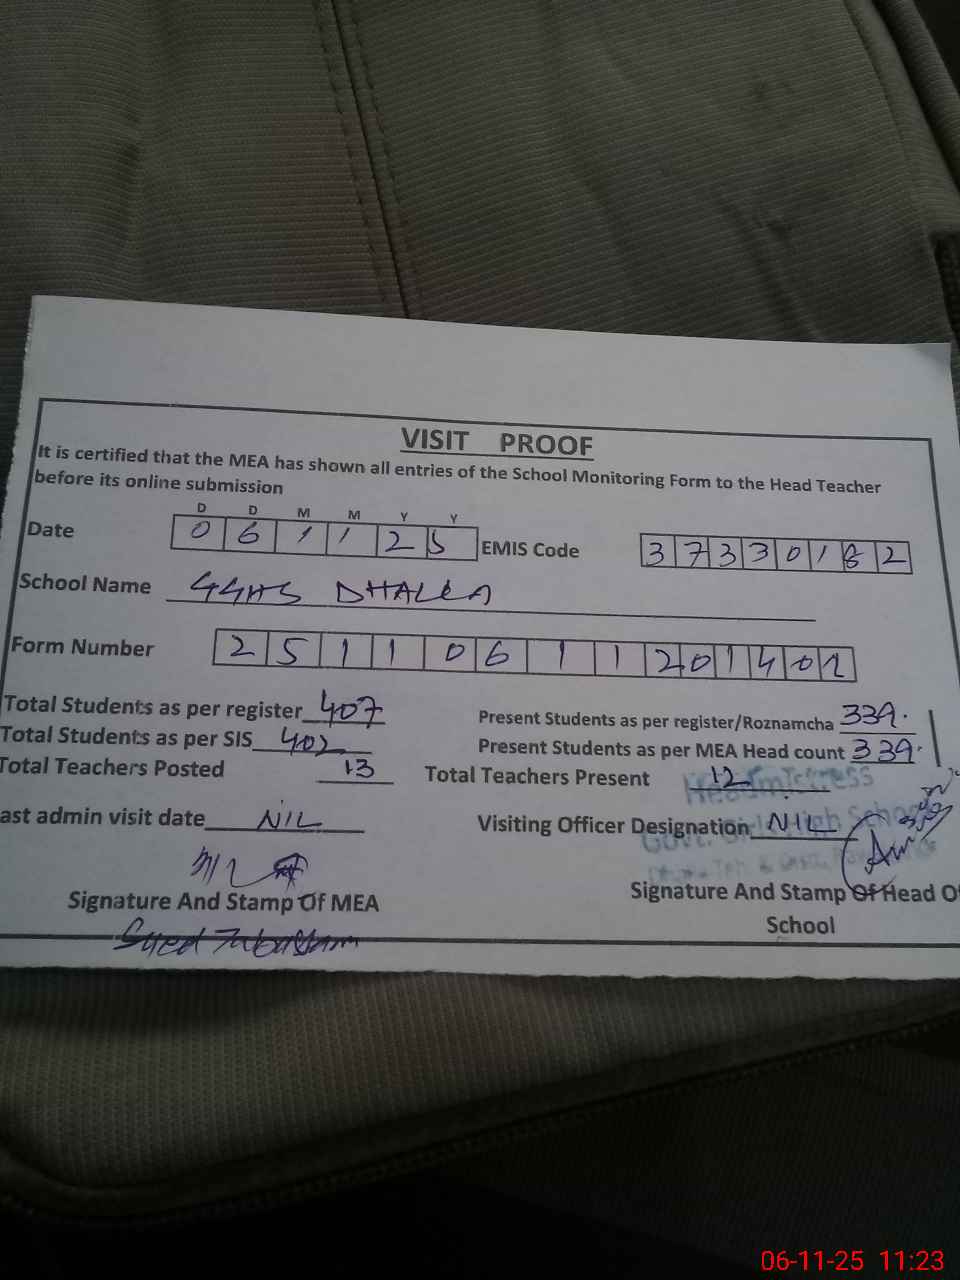 VISIT PROOF
It is certified that the MEA has shown all entries of the School Monitoring Form to the Head Teacher
before its online submission
D D M M Y Y
Date 0 6 1 1 2 5 EMIS Code 3 7 3 3 0 1 8 2
School Name GGHS DHALLA
Form Number 2 5 1 1 0 6 1 1 2 0 1 4 0 2
Total Students as per register 407 Present Students as per register/Roznamcha 339.
Total Students as per SIS 402 Present Students as per MEA Head count 339.
Total Teachers Posted 13 Total Teachers Present 12
Headmistress
ast admin visit date NIL Visiting Officer Designation NIL
Govt. Girls High School
Signature And Stamp Of MEA Signature And Stamp Of Head Of
School
Syed Tabassam
06-11-25 11:23